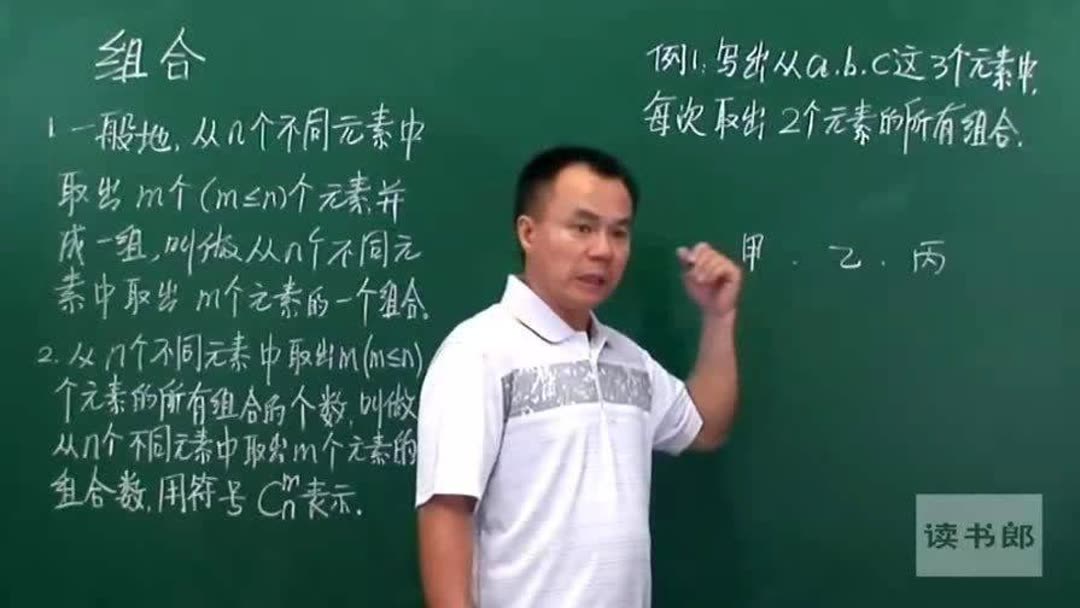 组合
1. 一般地, 从n个不同元素中
取出m个(m≤n)个元素并
成一组, 叫做从n个不同元
素中取出m个元素的一个组合.
2. 从n个不同元素中取出m(m≤n)
个元素的所有组合的个数, 叫做
从n个不同元素中取出m个元素的
组合数, 用符号 Cₙᵐ 表示.
例1: 写出从a.b.c这3个元素中,
每次取出2个元素的所有组合.
甲 . 乙 . 丙
读书郎